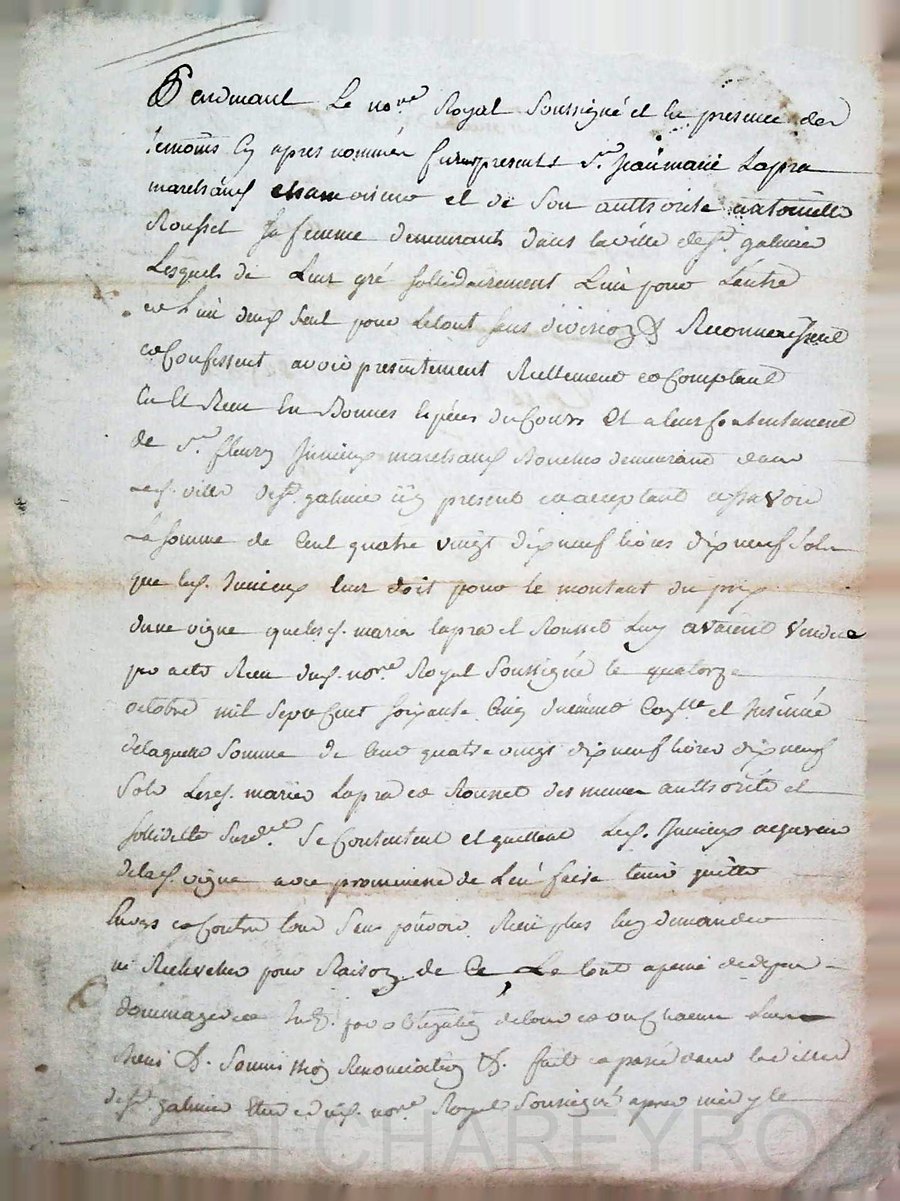 Pendmant Le no.re Royal Soussigné et En presence des
temoins Cy apres nommés furent presents Sr. Jean marie Lapra
marchand chamoiseur et de Son authorité antoinette
Rousset Sa femme demeurants dans la ville de St. galmier
Lesquels de Leur gré sollidairement L'un pour L'autre
et L'un deux Seul pour Letout sans division & Reconnoissent
et Confessent avoir presentement Reellement et Comptant
Eu Et Receu En Bonnes Especes du Cours Et a leur Contentement
de Sr. fleury Junieux marchand Boucher demeurant dans
Lad. ville de St. galmier icy present et acceptant a Savoir
La Somme de Cent quatre vingt dix neuf livres dix neuf Sols
que led. Junieux leur doit pour le montant du prix
dune vigne que lesd. mariés lapra et Rousset Luy avaient Vendue
par acte Receu dud. no.re Royal Soussigné le quatorze
octobre mil Sept Cent Soixante Cinq duement Con.llé et Insinué
de laquelle Somme de Cent quatre vingt dix neuf livres dix neuf
Sols Lesd. mariés Lapra et Rousset des memes authorité et
sollidité Susd. Se Contentent et quittent Led. Junieux acquereur
de lad. vigne avec promesse de L'en faire tenir quitte
Envers et Contre tous Sans pouvoir Rien plus luy demander
ni Rechercher pour Raison de Ce Le tout a peine de depens
dommages et Int. par obligation de tous et un Chacun Leurs
Biens & Soumission Renonciation & fait et passé dans la ville
de St. galmier Etude dud. no.re Royal Soussigné apres midy le
CHAREYRON